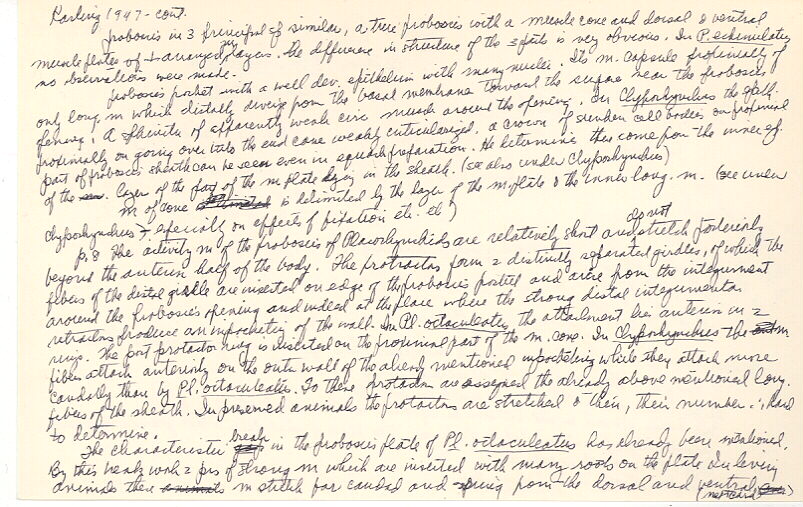 Karling 1947 - cont.
proboscis in 3 principal gf similar, a true proboscis with a muscle cone and dorsal & ventral
muscle plates of ± arranged layers. The difference in structure of the 3 parts is very obvious. In P. echinulatus
no observations were made. Its m. capsule proximally of
proboscis pocket with a well dev. epithelium with many nuclei.
only long m which distally diverge from the basal membrane toward the surface near the proboscis
opening. A sphincter of apparently weak circ muscle around the opening. In Clyporhynchus the epith.
proximally on going over into the end cone weakly cuticularized, a crown of sunken cell bodies on proximal
part of proboscis sheath can be seen even in squash preparation. He determines these come from the inner ep.
of the layer of the part of the m plate lying in the sheath. (see also under Clyporhynchus)
m of cone is delimited by the layer of the m plate & the inner long. m. (see under
Clyporhynchus - especially on effects of fixation etc. etc)
p. 8 The activity m of the proboscis of Placorhynchids are relatively short and do not stretch posteriorly
beyond the anterior half of the body. The protractors form 2 distinctly separated girdles, of which the
fibers of the distal girdle are inserted on edge of the proboscis pocket and arise from the integument
around the proboscis opening and indeed at the place where the strong distal integumentary
retractors produce an inpocketing of the wall. In Pl. octaculeatus the attachment lies anterior in 2
rings. The post protractor ring is inserted on the proximal part of the m. cone. In Clyporhynchus the m
fibers attach anteriorly on the outer wall of the already mentioned inpocketing while they attach more
caudally than by Pl. octaculeatus. To these protractors are assigned the already above mentioned long.
fibers of the sheath. In preserved animals the protractors are stretched & thin, their number ∴ hard
to determine.
The characteristic break in the proboscis plate of Pl. octaculeatus has already been mentioned.
By this break work 2 prs of strong m which are inserted with many roots on the plate. In living
animals these m stretch far caudad and spring from the dorsal and ventral
(next card)